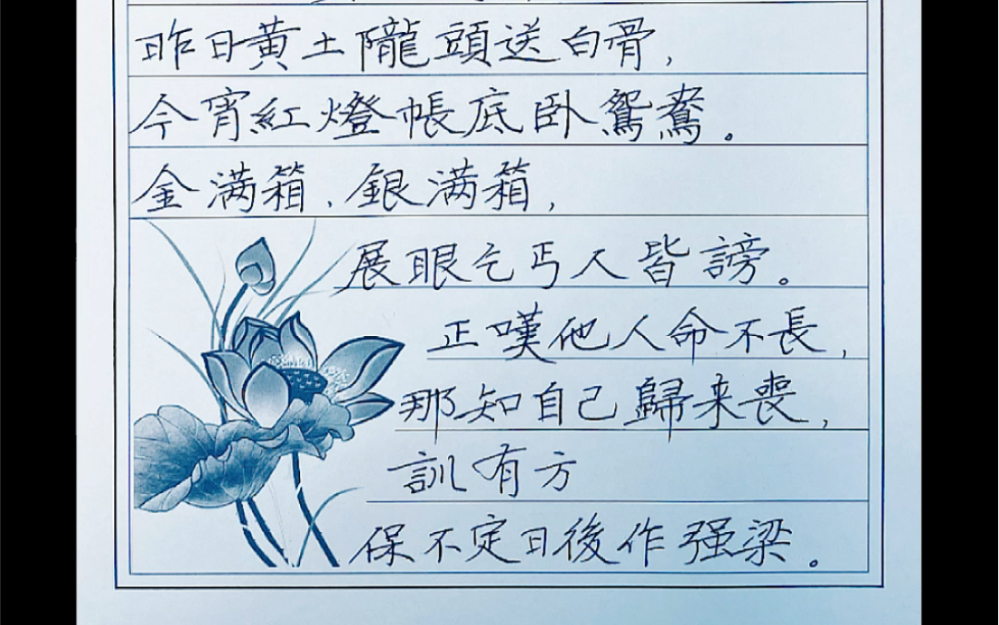 昨日黃土隴頭送白骨，
今宵紅燈帳底卧鴛鴦。
金满箱，銀满箱，
展眼乞丐人皆謗。
正嘆他人命不長，
那知自己歸来喪，
訓有方
保不定日後作强梁。